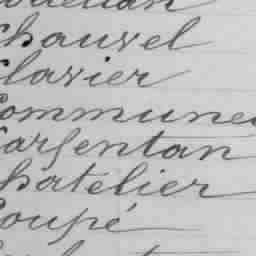 Chauvel
Clavier
Commune
Carfentan
Chatelier
Coupé